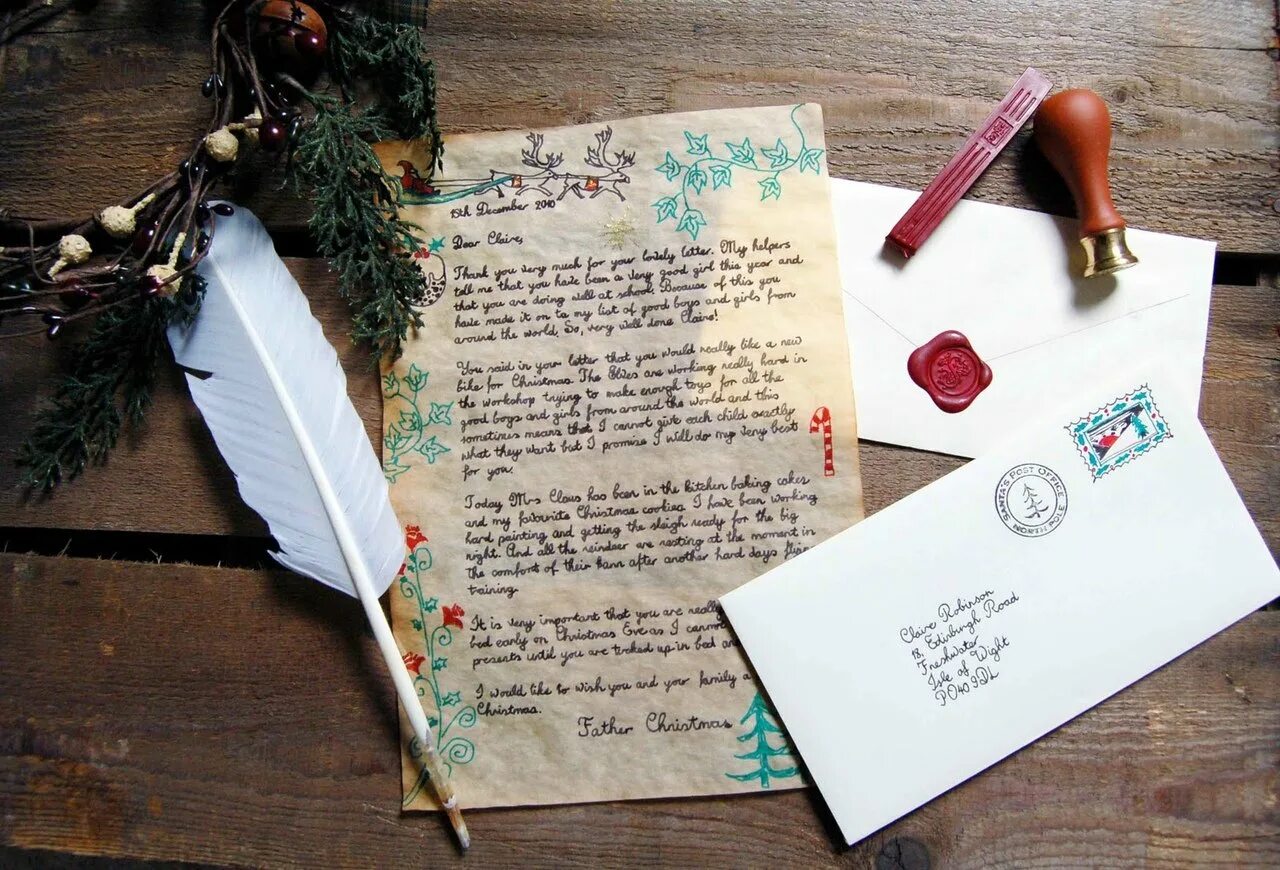 15th December 2010
Dear Claire,
Thank you very much for your lovely letter. My helpers
tell me that you have been a very good girl this year and
that you are doing well at school. Because of this you
have made it on to my list of good boys and girls from
around the world. So, very well done Claire!
You said in your letter that you would really like a new
bike for Christmas. The Elves are working really hard in
the workshop trying to make enough toys for all the
good boys and girls from around the world and this
sometimes means that I cannot give each child exactly
what they want but I promise I will do my very best
for you.
Today Mrs Claus has been in the kitchen baking cakes
and my favourite Christmas cookies. I have been working
hard painting and getting the sleigh ready for the big
night. And all the reindeer are resting at the moment in
the comfort of their barn after another hard days flying
training.
It is very important that you are really
bed early on Christmas Eve as I cannot
presents until you are tucked up in bed
I would like to wish you and your family a
Christmas.
Father Christmas
SANTA'S POST OFFICE
NORTH POLE
Claire Robinson
18, Edinburgh Road
Freshwater
Isle of Wight
PO40 9DL